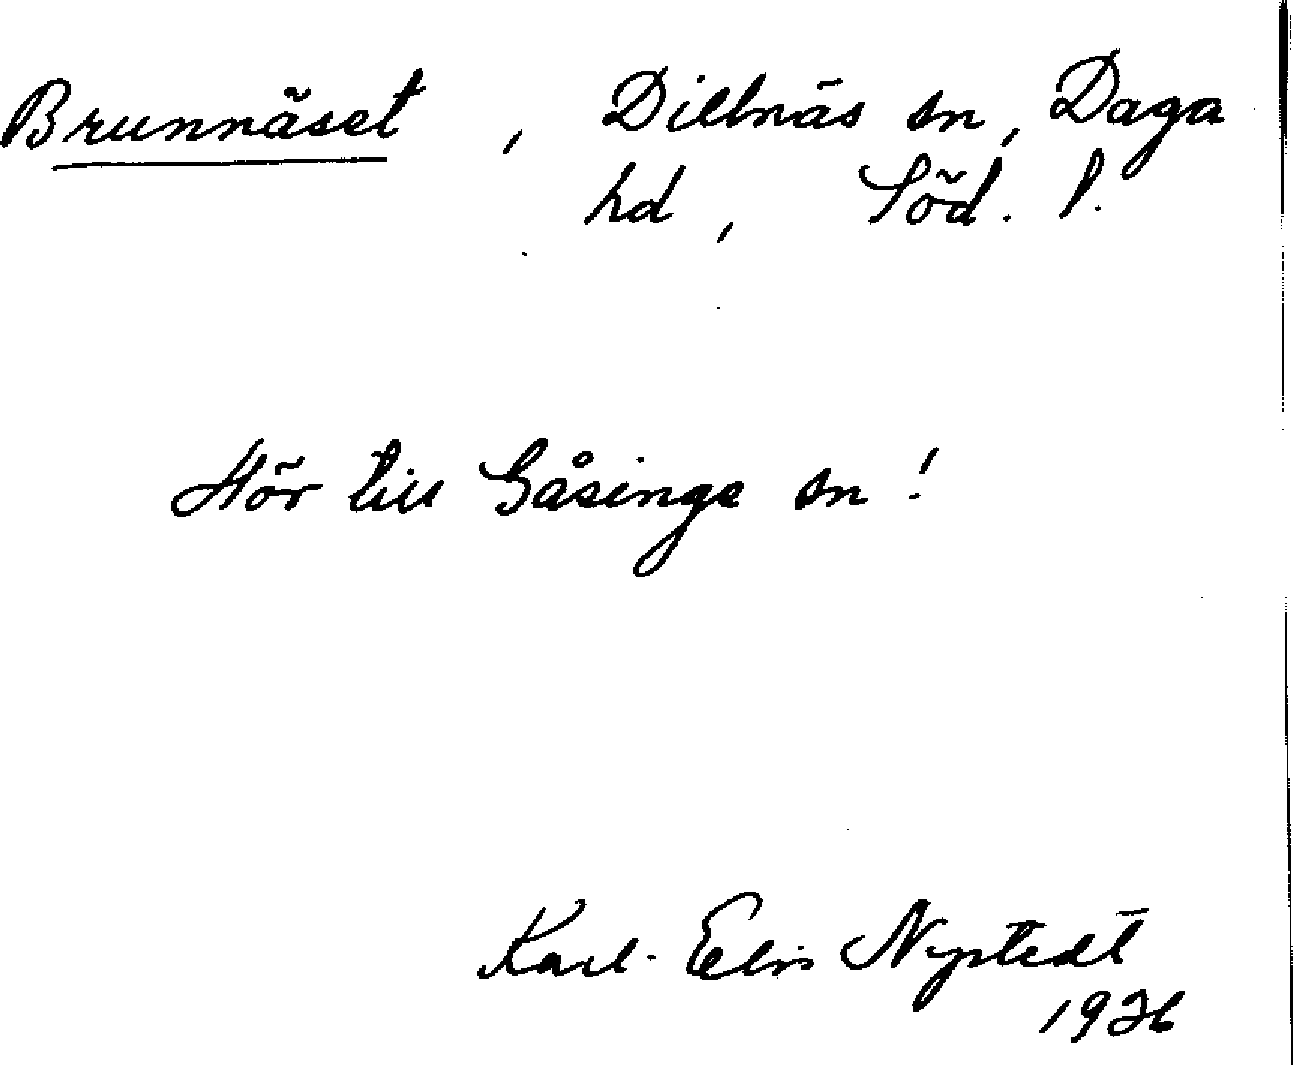 Brunnäset, Dillnäs sn, Daga
hd, Söd. l.
Hör till Gåsinge sn!
Karl-Elis Nystedt
1936